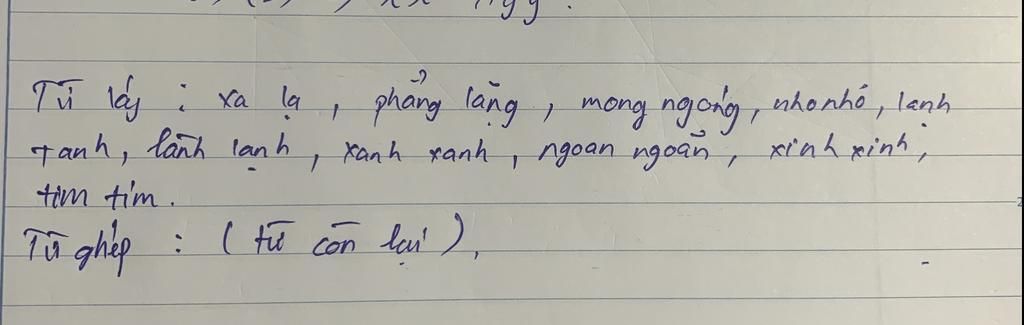 Từ láy : xa lạ, phẳng lặng, mong ngóng, nho nhỏ, lanh
tanh, lành lạnh, xanh xanh, ngoan ngoãn, xinh xinh,
tim tím.
Từ ghép : (từ còn lại).